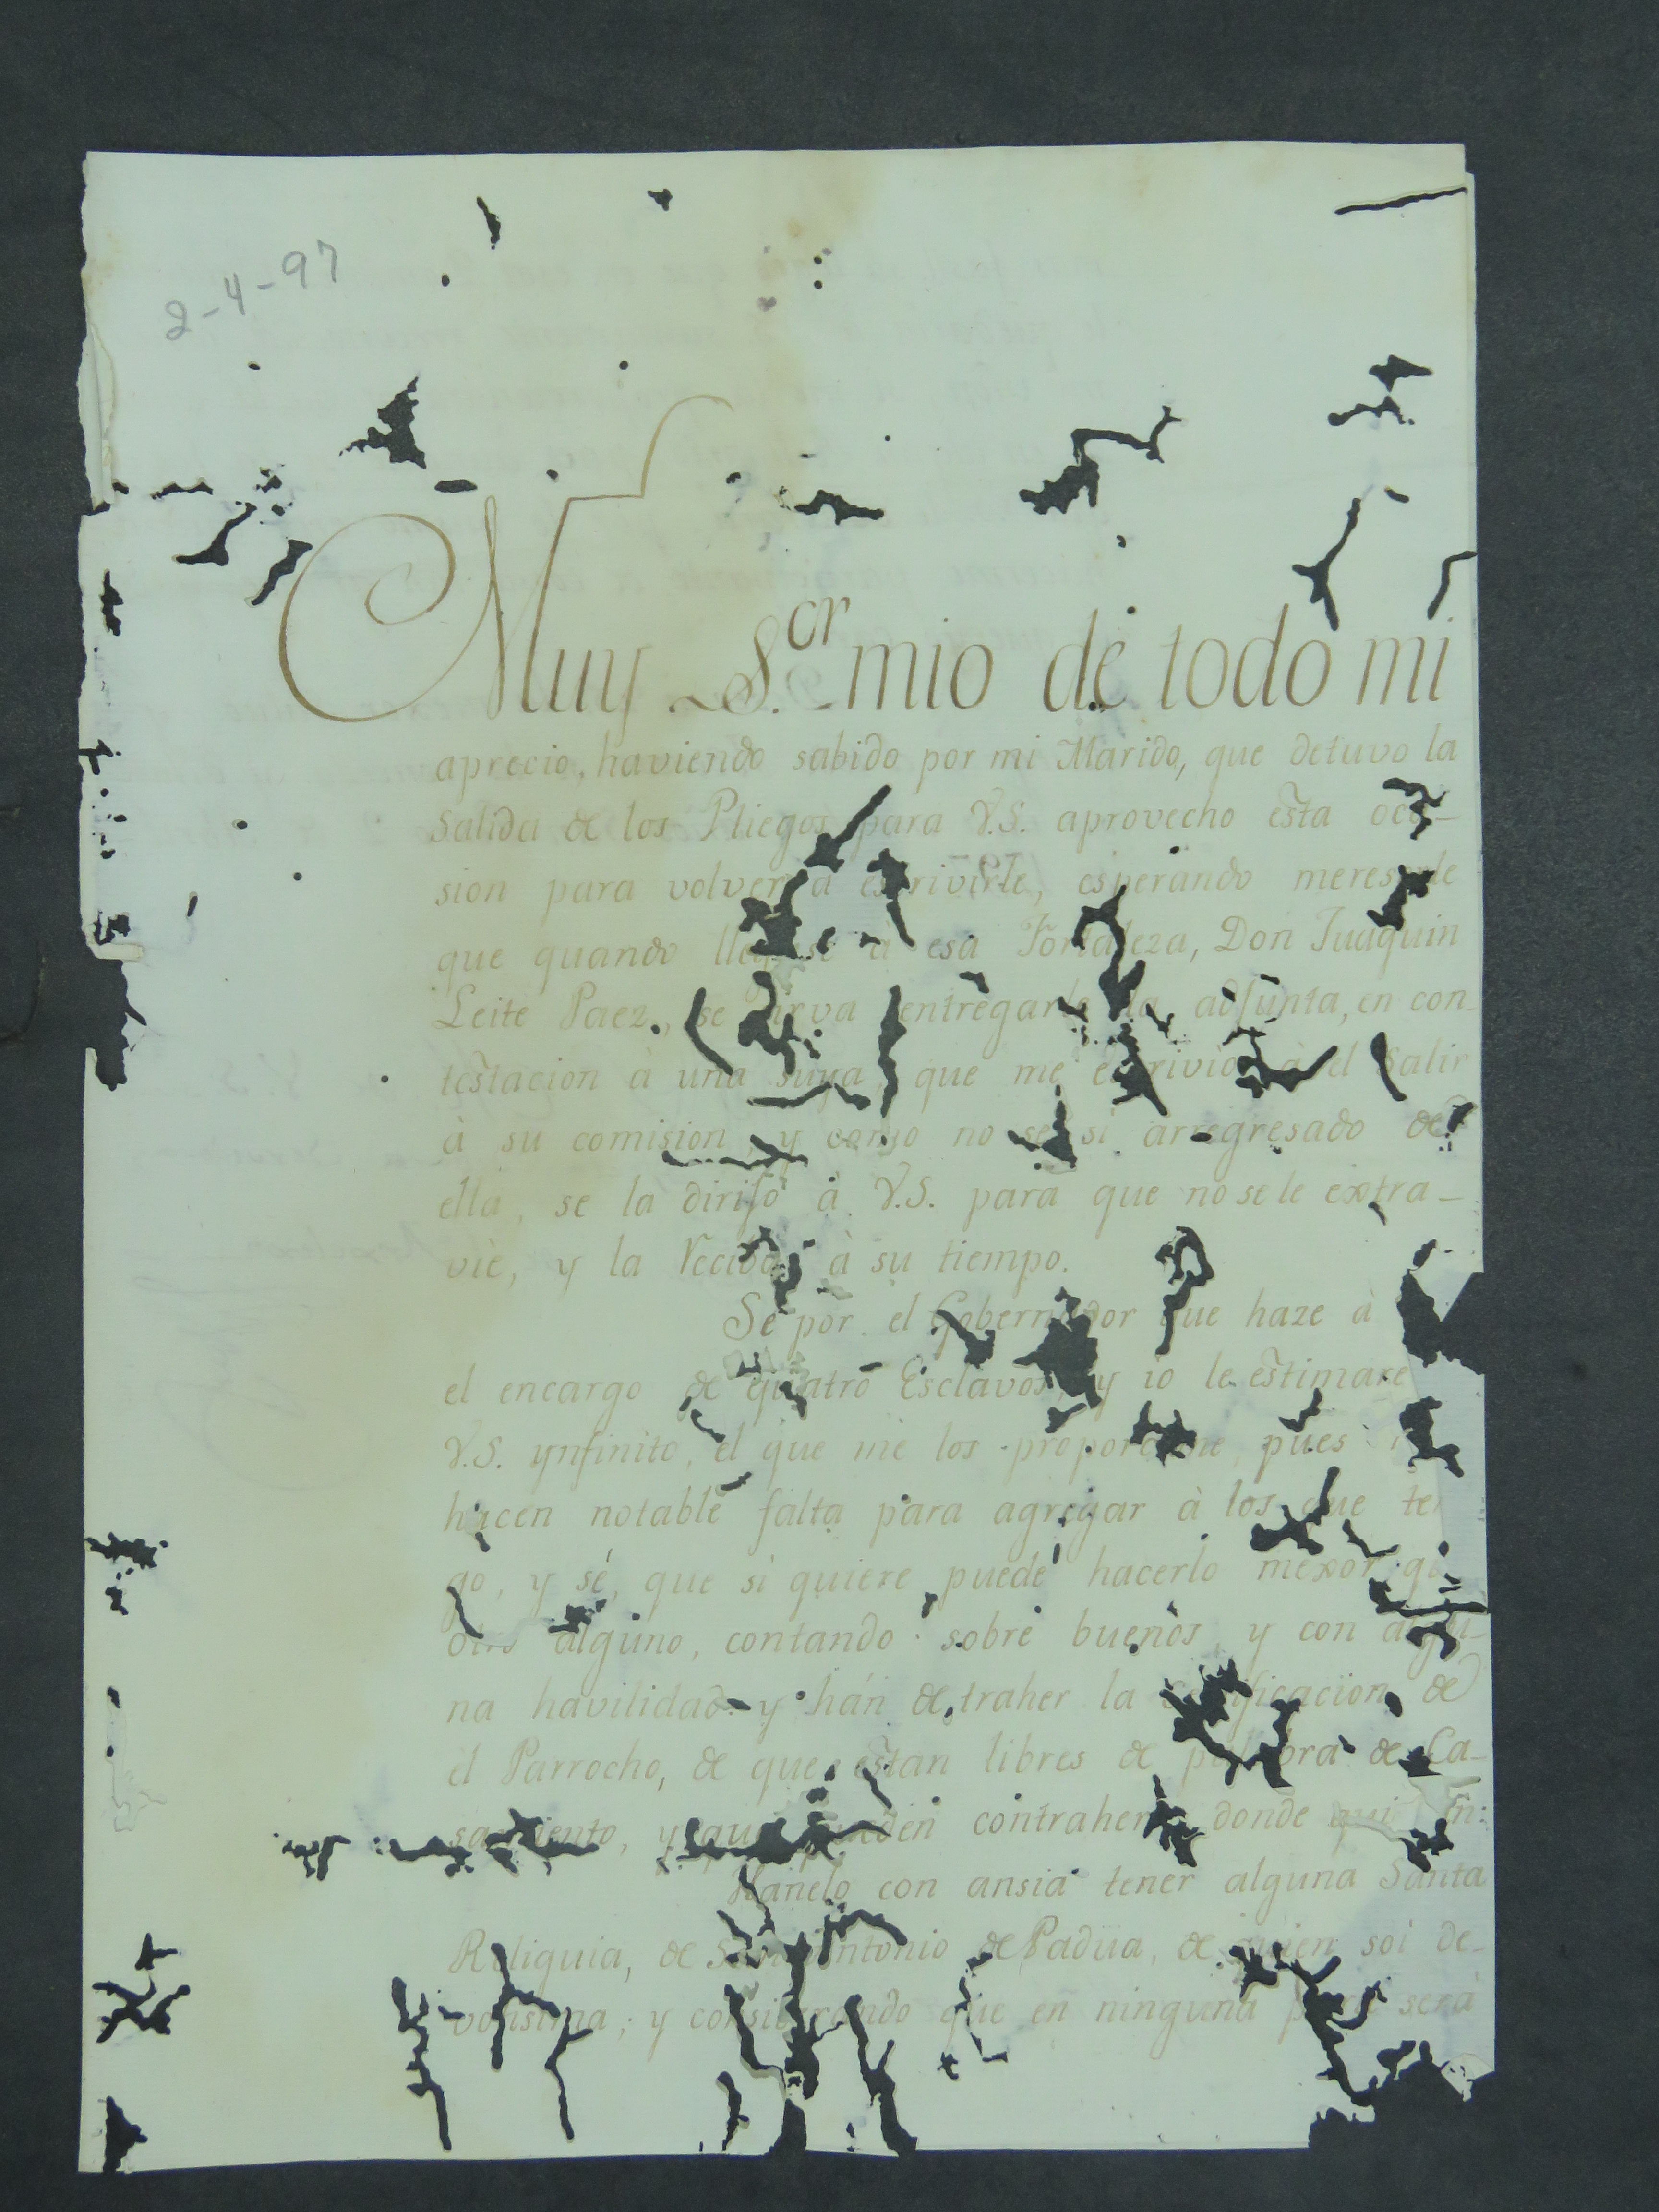 2-4-97
Muy S.or mio de todo mi
aprecio, haviendo sabido por mi Marido, que detuvo la
Salida de los Pliegos para V.S. aprovecho esta oca-
sion para volver a escrivirle, esperando mereserle
que quando llegase a esa Fortaleza, Don Juaquin
Leite Paez, se sirva entregarle la adjunta, en con-
testacion à una suya, que me escrivio à el Salir
à su comision, y como no se si arregresado de
ella, se la dirijo à V.S. para que no se le extra-
viè, y la reciba à su tiempo.
Sè por el Gobernador que haze à
el encargo de quatro Esclavos, y io le estimarè
V.S. ynfinito, el que me los proporcione, pues
hacen notable falta para agregar à los que ten
go, y sé, que si quiere puede hacerlo mexor que
otro alguno, contando sobre buenos, y con algu-
na havilidad y hán de traher la certificacion de
el Parrocho, de que estan libres de palabra de Ca-
samiento, y que pueden contraher donde
Hanelo con ansia tener alguna Santa
Reliquia, de San Antonio de Padua, de quien soi de-
votisima; y considerando que en ninguna parte serà